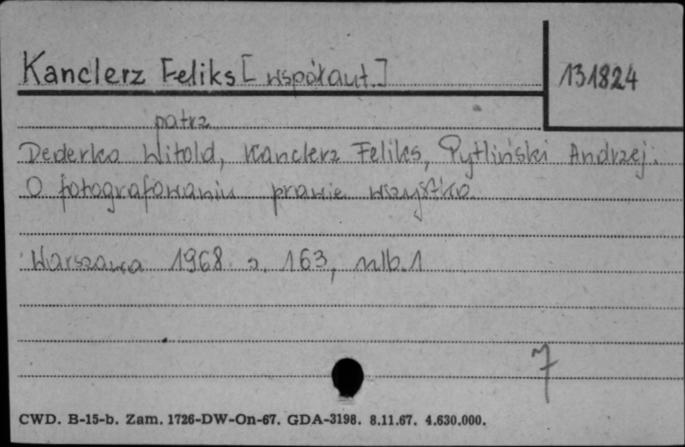 Kanclerz Feliks [współaut.]
131824
patrz
Dederko Witold, Kanclerz Feliks, Pytliński Andrzej.
O fotografowaniu prawie wszystko.
Warszawa 1968 s. 163, nlb. 1
7
CWD. B-15-b. Zam. 1726-DW-On-67. GDA-3198. 8.11.67. 4.630.000.